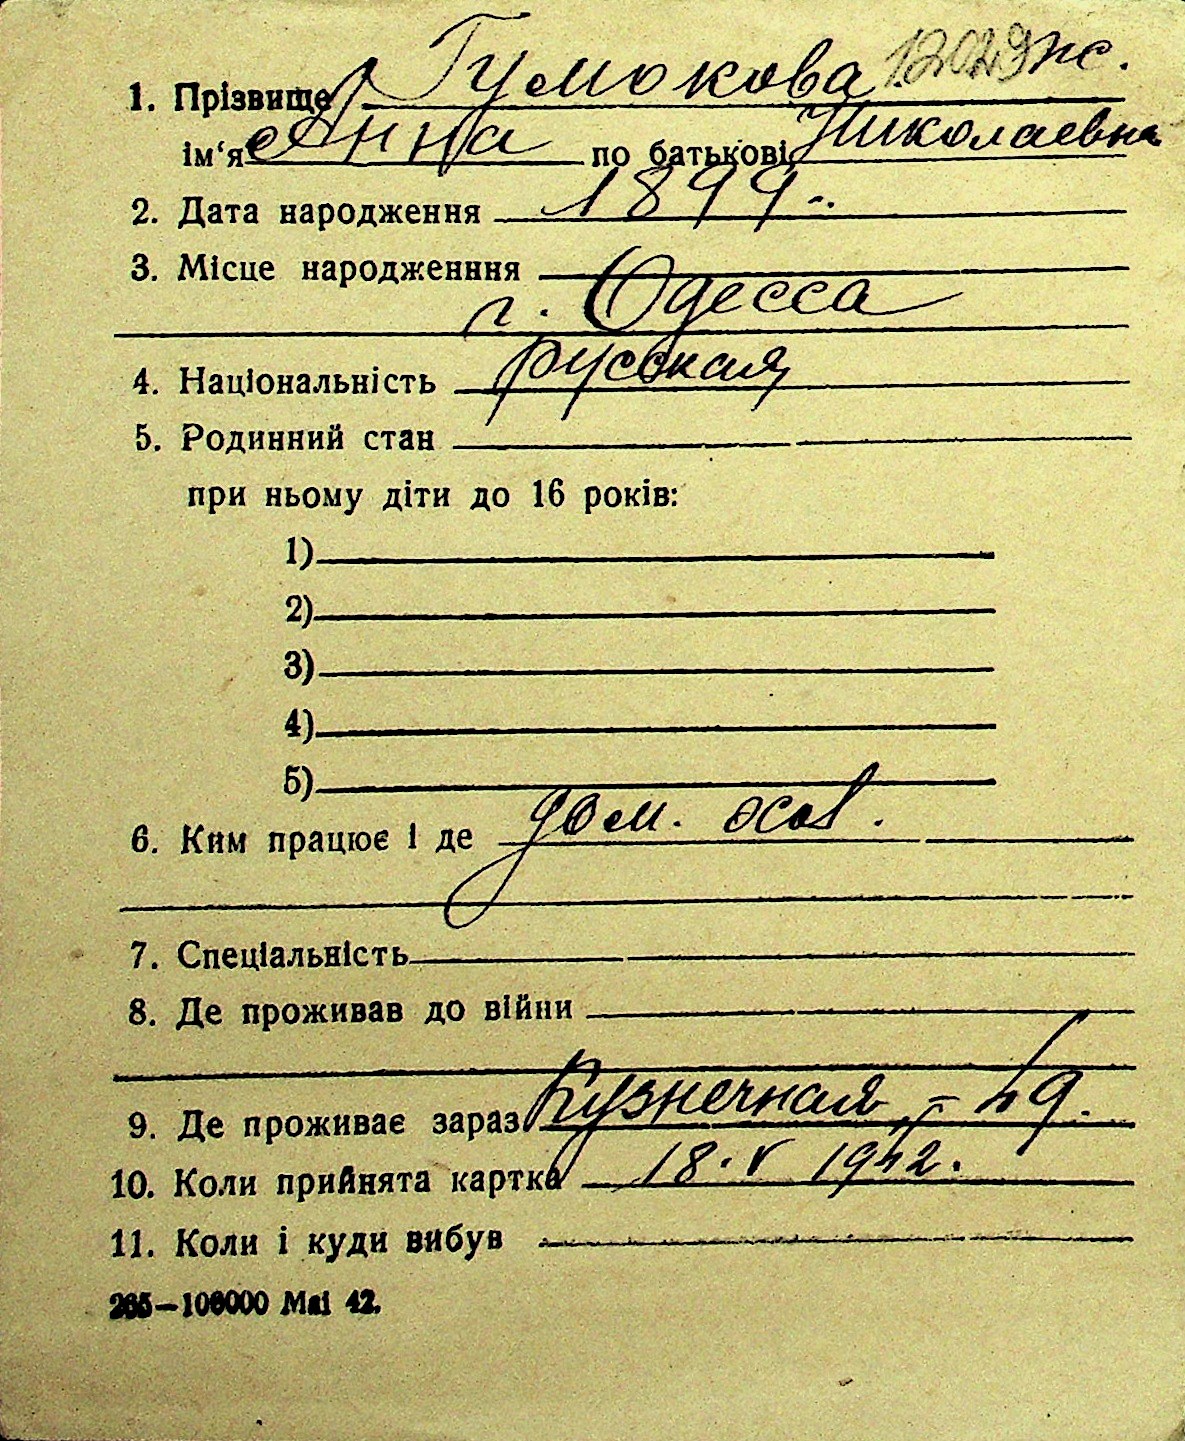 12029 жс.
1. Прізвище Гумокова
ім‘я Анна по батькові Николаевна
2. Дата народження 1899..
3. Місце народженння
г. Одесса
4. Національність русская
5. Родинний стан
при ньому діти до 16 років:
1)
2)
3)
4)
5)
6. Ким працює і де дом. хоз.
7. Спеціальність
8. Де проживав до війни
9. Де проживає зараз Кузнечная, – 49.
10. Коли прийнята картка 18. V 1942.
11. Коли і куди вибув
265—100000 Маі 42.